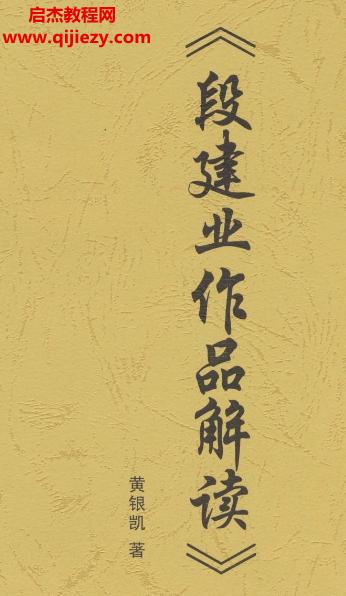 启杰教程网
www.qijiezy.com
《段建业作品解读》
黄银凯 著